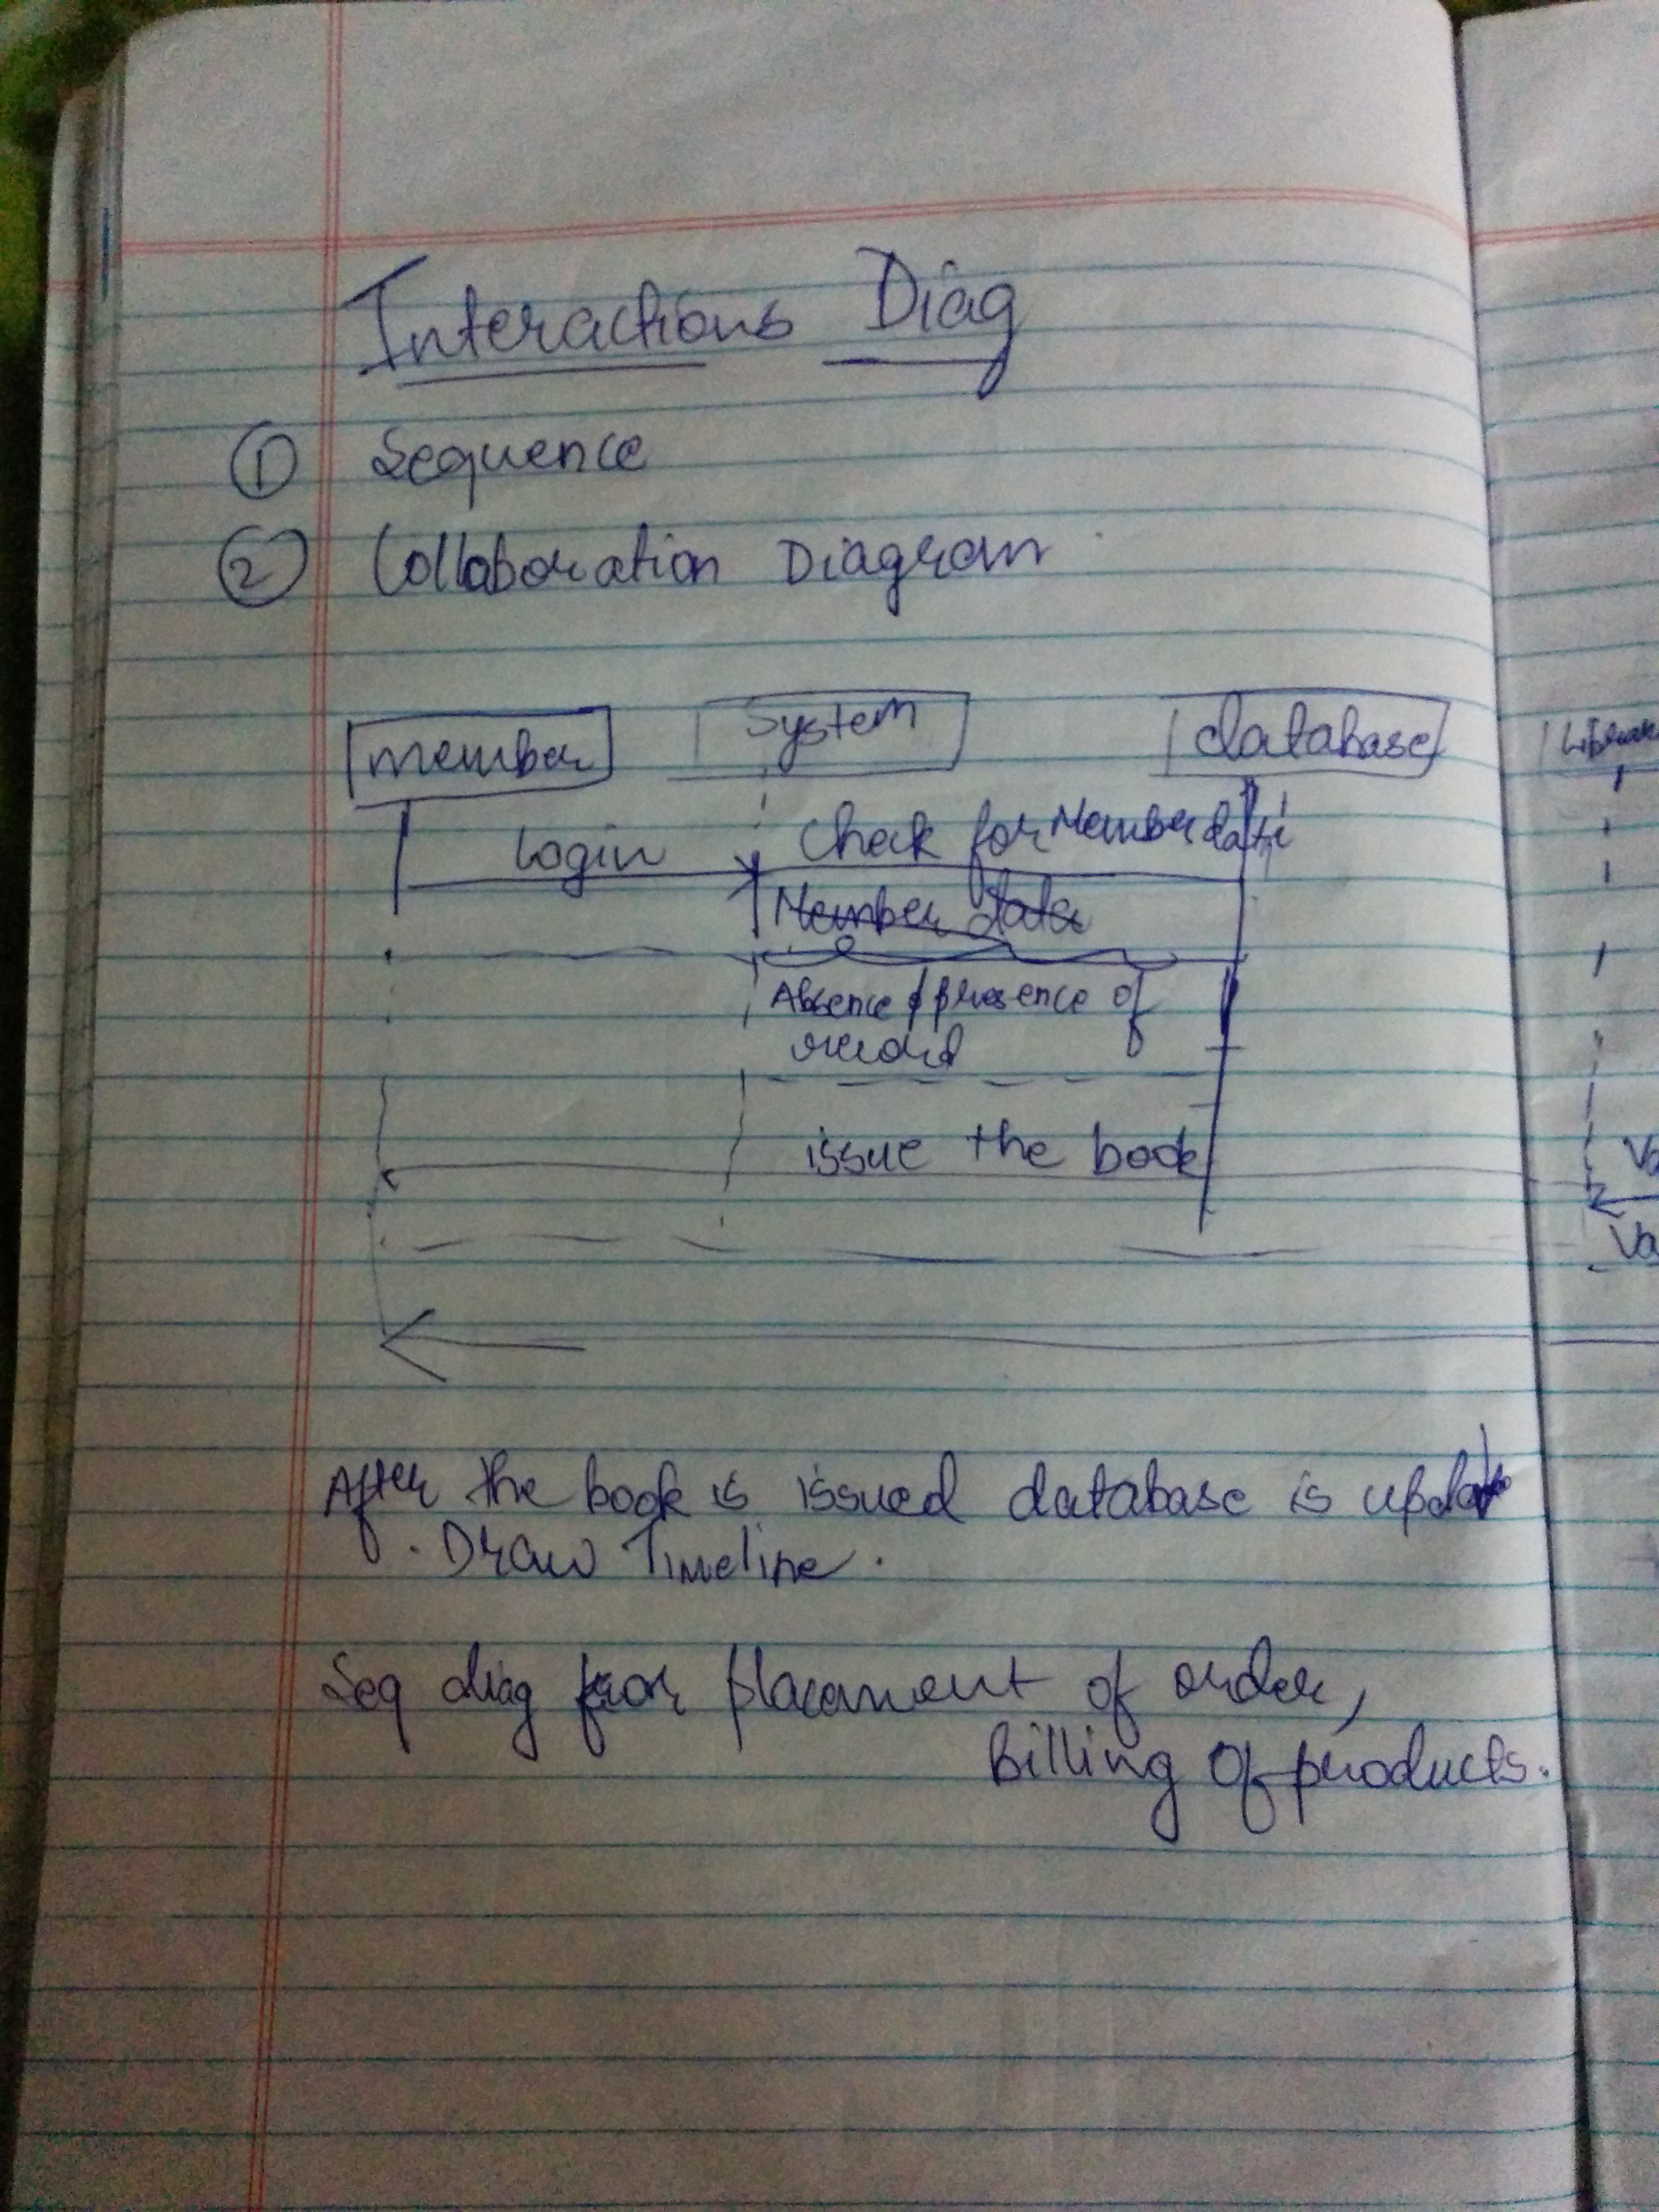 Interactions Diag
① Sequence
② Collaboration Diagram
member System database
Login Check for Member
Member data
Absence / presence of
record
issue the book
After the book is issued database is
. Draw Timeline .
Seq diag for placement of order,
Billing of products.